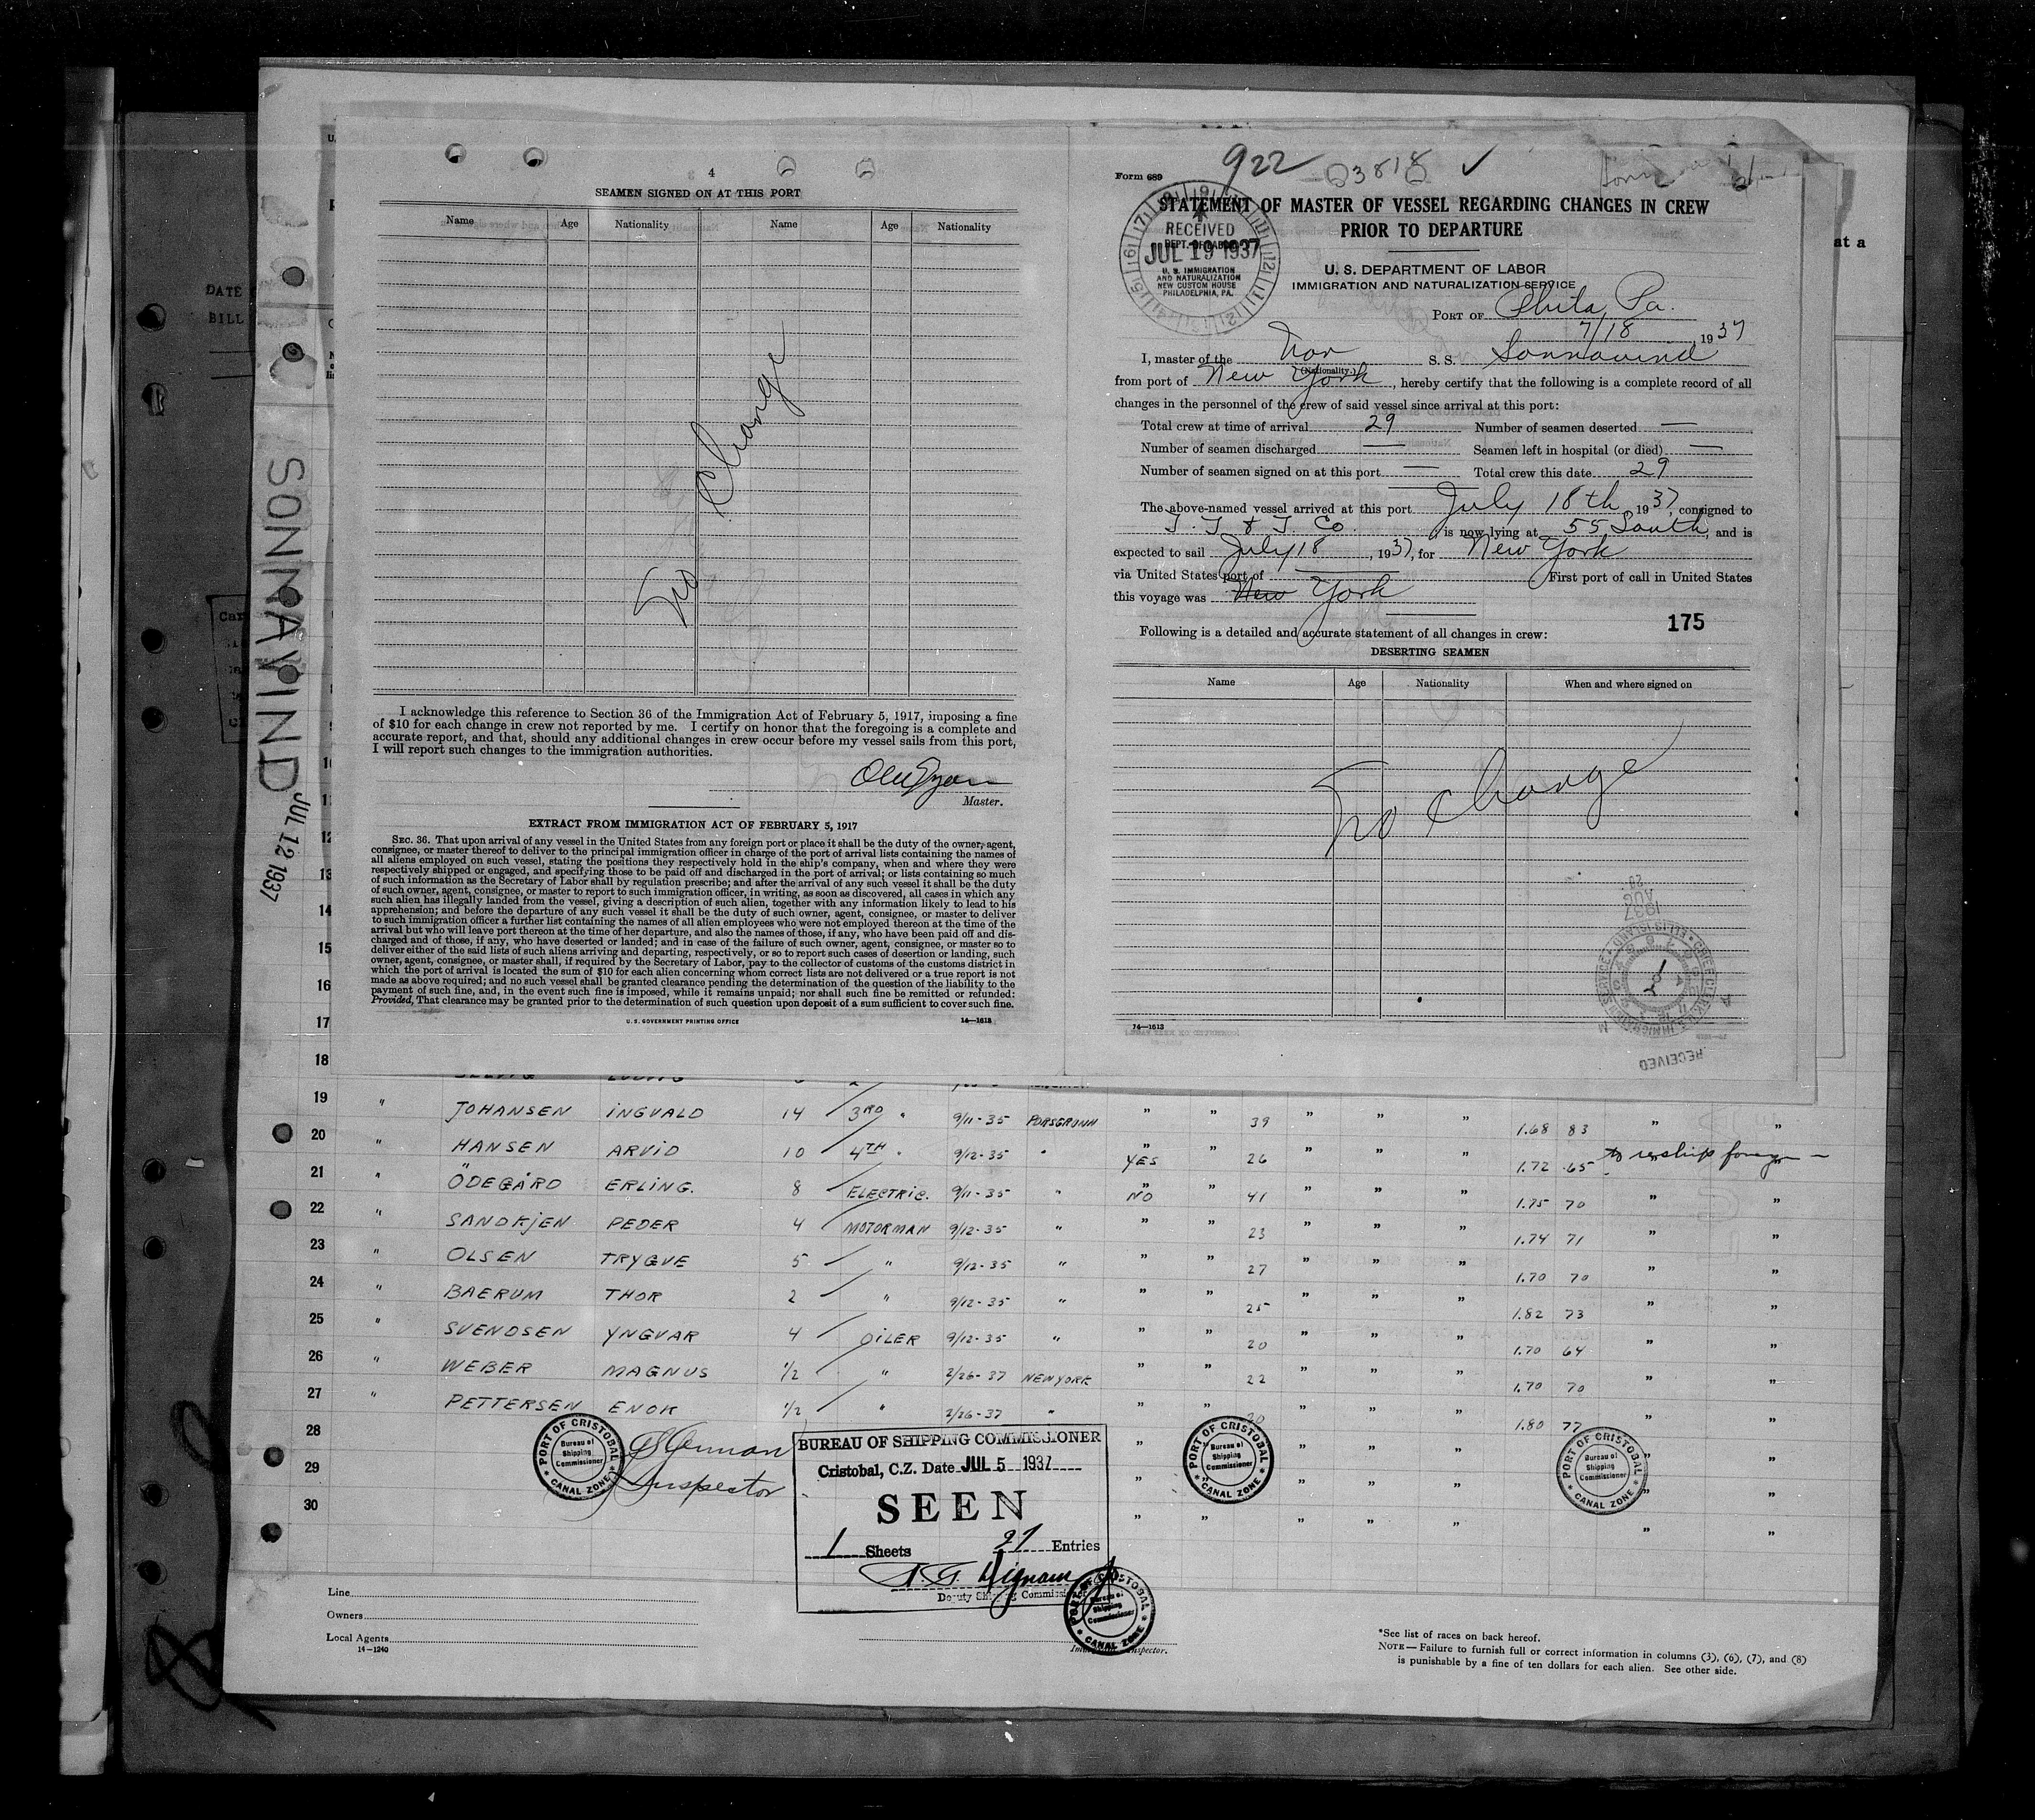 4
SEAMEN SIGNED ON AT THIS PORT
Name Age Nationality Name Age Nationality
No Change
I acknowledge this reference to Section 36 of the Immigration Act of February 5, 1917, imposing a fine
of $10 for each change in crew not reported by me. I certify on honor that the foregoing is a complete and
accurate report, and that, should any additional changes in crew occur before my vessel sails from this port,
I will report such changes to the immigration authorities.
Master.
EXTRACT FROM IMMIGRATION ACT OF FEBRUARY 5, 1917
SEC. 36. That upon arrival of any vessel in the United States from any foreign port or place it shall be the duty of the owner, agent,
consignee, or master thereof to deliver to the principal immigration officer in charge of the port of arrival lists containing the names of
all aliens employed on such vessel, stating the positions they respectively hold in the ship's company, when and where they were
respectively shipped or engaged, and specifying those to be paid off and discharged in the port of arrival; or lists containing so much
of such information as the Secretary of Labor shall by regulation prescribe; and after the arrival of any such vessel it shall be the duty
of such owner, agent, consignee, or master to report to such immigration officer, in writing, as soon as discovered, all cases in which any
such alien has illegally landed from the vessel, giving a description of such alien, together with any information likely to lead to his
apprehension; and before the departure of any such vessel it shall be the duty of such owner, agent, consignee, or master to deliver
to such immigration officer a further list containing the names of all alien employees who were not employed thereon at the time of the
arrival but who will leave port thereon at the time of her departure, and also the names of those, if any, who have been paid off and dis-
charged and of those, if any, who have deserted or landed; and in case of the failure of such owner, agent, consignee, or master so to
deliver either of the said lists of such aliens arriving and departing, respectively, or so to report such cases of desertion or landing, such
owner, agent, consignee, or master shall, if required by the Secretary of Labor, pay to the collector of customs of the customs district in
which the port of arrival is located the sum of $10 for each alien concerning whom correct lists are not delivered or a true report is not
made as above required; and no such vessel shall be granted clearance pending the determination of the question of the liability to the
payment of such fine, and, in the event such fine is imposed, while it remains unpaid; nor shall such fine be remitted or refunded:
Provided, That clearance may be granted prior to the determination of such question upon deposit of a sum sufficient to cover such fine.
U. S. GOVERNMENT PRINTING OFFICE 14—1613
922 3818 ✓
Form 689
STATEMENT OF MASTER OF VESSEL REGARDING CHANGES IN CREW
PRIOR TO DEPARTURE
RECEIVED
DEPT. OF LABOR
JUL 19 1937
U. S. IMMIGRATION
AND NATURALIZATION
NEW CUSTOM HOUSE
PHILADELPHIA, PA.
U. S. DEPARTMENT OF LABOR
IMMIGRATION AND NATURALIZATION SERVICE
PORT OF Phila, Pa.
7/18, 1937
I, master of the Nor S. S. Sonnavind
(Nationality)
from port of New York, hereby certify that the following is a complete record of all
changes in the personnel of the crew of said vessel since arrival at this port:
Total crew at time of arrival 29 Number of seamen deserted —
Number of seamen discharged — Seamen left in hospital (or died) —
Number of seamen signed on at this port — Total crew this date 29
The above-named vessel arrived at this port July 18th, 1937, consigned to
T. T & T. Co. is now lying at 55 South, and is
expected to sail July 18, 1937, for New York
via United States port of — First port of call in United States
this voyage was New York
175
Following is a detailed and accurate statement of all changes in crew:
DESERTING SEAMEN
Name Age Nationality When and where signed on
No Change
14—1613
AUG
1937
RECEIVED
at a
DATE
BILL
SONNAVIND JUL 12 1937
12
13
14
15
16
17
18
19 " JOHANSEN INGVALD 14 3RD " 9/11-35 PORSGRUNN " " 39 " " " 1.68 83 " "
20 " HANSEN ARVID 10 4TH " 9/12-35 " " YES " 26 " " " 1.72 65 to reship foreign —
21 " ÖDEGÅRD ERLING. 8 ELECTRIC. 9/11-35 " " NO " 41 " " " 1.75 70 " "
22 " SANDKJEN PEDER 4 MOTORMAN 9/12-35 " " " 23 " " " 1.74 71 " "
23 " OLSEN TRYGVE 5 " 9/12-35 " " " 27 " " " 1.70 70 " "
24 " BAERUM THOR 2 " 9/12-35 " " " 25 " " " 1.82 73 " "
25 " SVENDSEN YNGVAR 4 OILER 9/12-35 " " " 20 " " " 1.70 64 " "
26 " WEBER MAGNUS 1/2 " 2/26-37 NEW YORK " " 22 " " " 1.70 70 " "
27 " PETTERSEN ENOK 1/2 " 2/26-37 " " " 20 " " " 1.80 77 " "
28
29
30
PORT OF CRISTOBAL
Bureau of
Shipping
Commissioner
CANAL ZONE
Inspector
BUREAU OF SHIPPING COMMISSIONER
Cristobal, C.Z. Date JUL 5 1937
SEEN
1 Sheets 27 Entries
Deputy Shipping Commissioner
PORT OF CRISTOBAL
Bureau of
Shipping
Commissioner
CANAL ZONE
PORT OF CRISTOBAL
Bureau of
Shipping
Commissioner
CANAL ZONE
PORT OF CRISTOBAL
Bureau of
Shipping
Commissioner
CANAL ZONE
Line
Owners
Local Agents
14—1240
Immigrant Inspector.
*See list of races on back hereof.
NOTE—Failure to furnish full or correct information in columns (3), (6), (7), and (8)
is punishable by a fine of ten dollars for each alien. See other side.